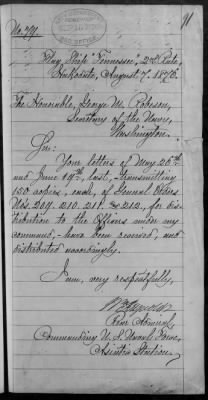 91
No. 79.
Flag Ship "Tennessee", 2nd Rate,
August 7, 1876.
The Honorable, George M. Robeson,
Secretary of the Navy,
Washington.
Sir:
Your letters of May 26th
and June 19th, last, transmitting
150 copies, each, of General Orders
Nos. 209. 210. 211. & 212, for dis-
tribution to the Officers under my
command, have been received, and
distributed accordingly.
I am, very respectfully,
Rear Admiral,
Commanding U. S. Naval Force,
Asiatic Station.